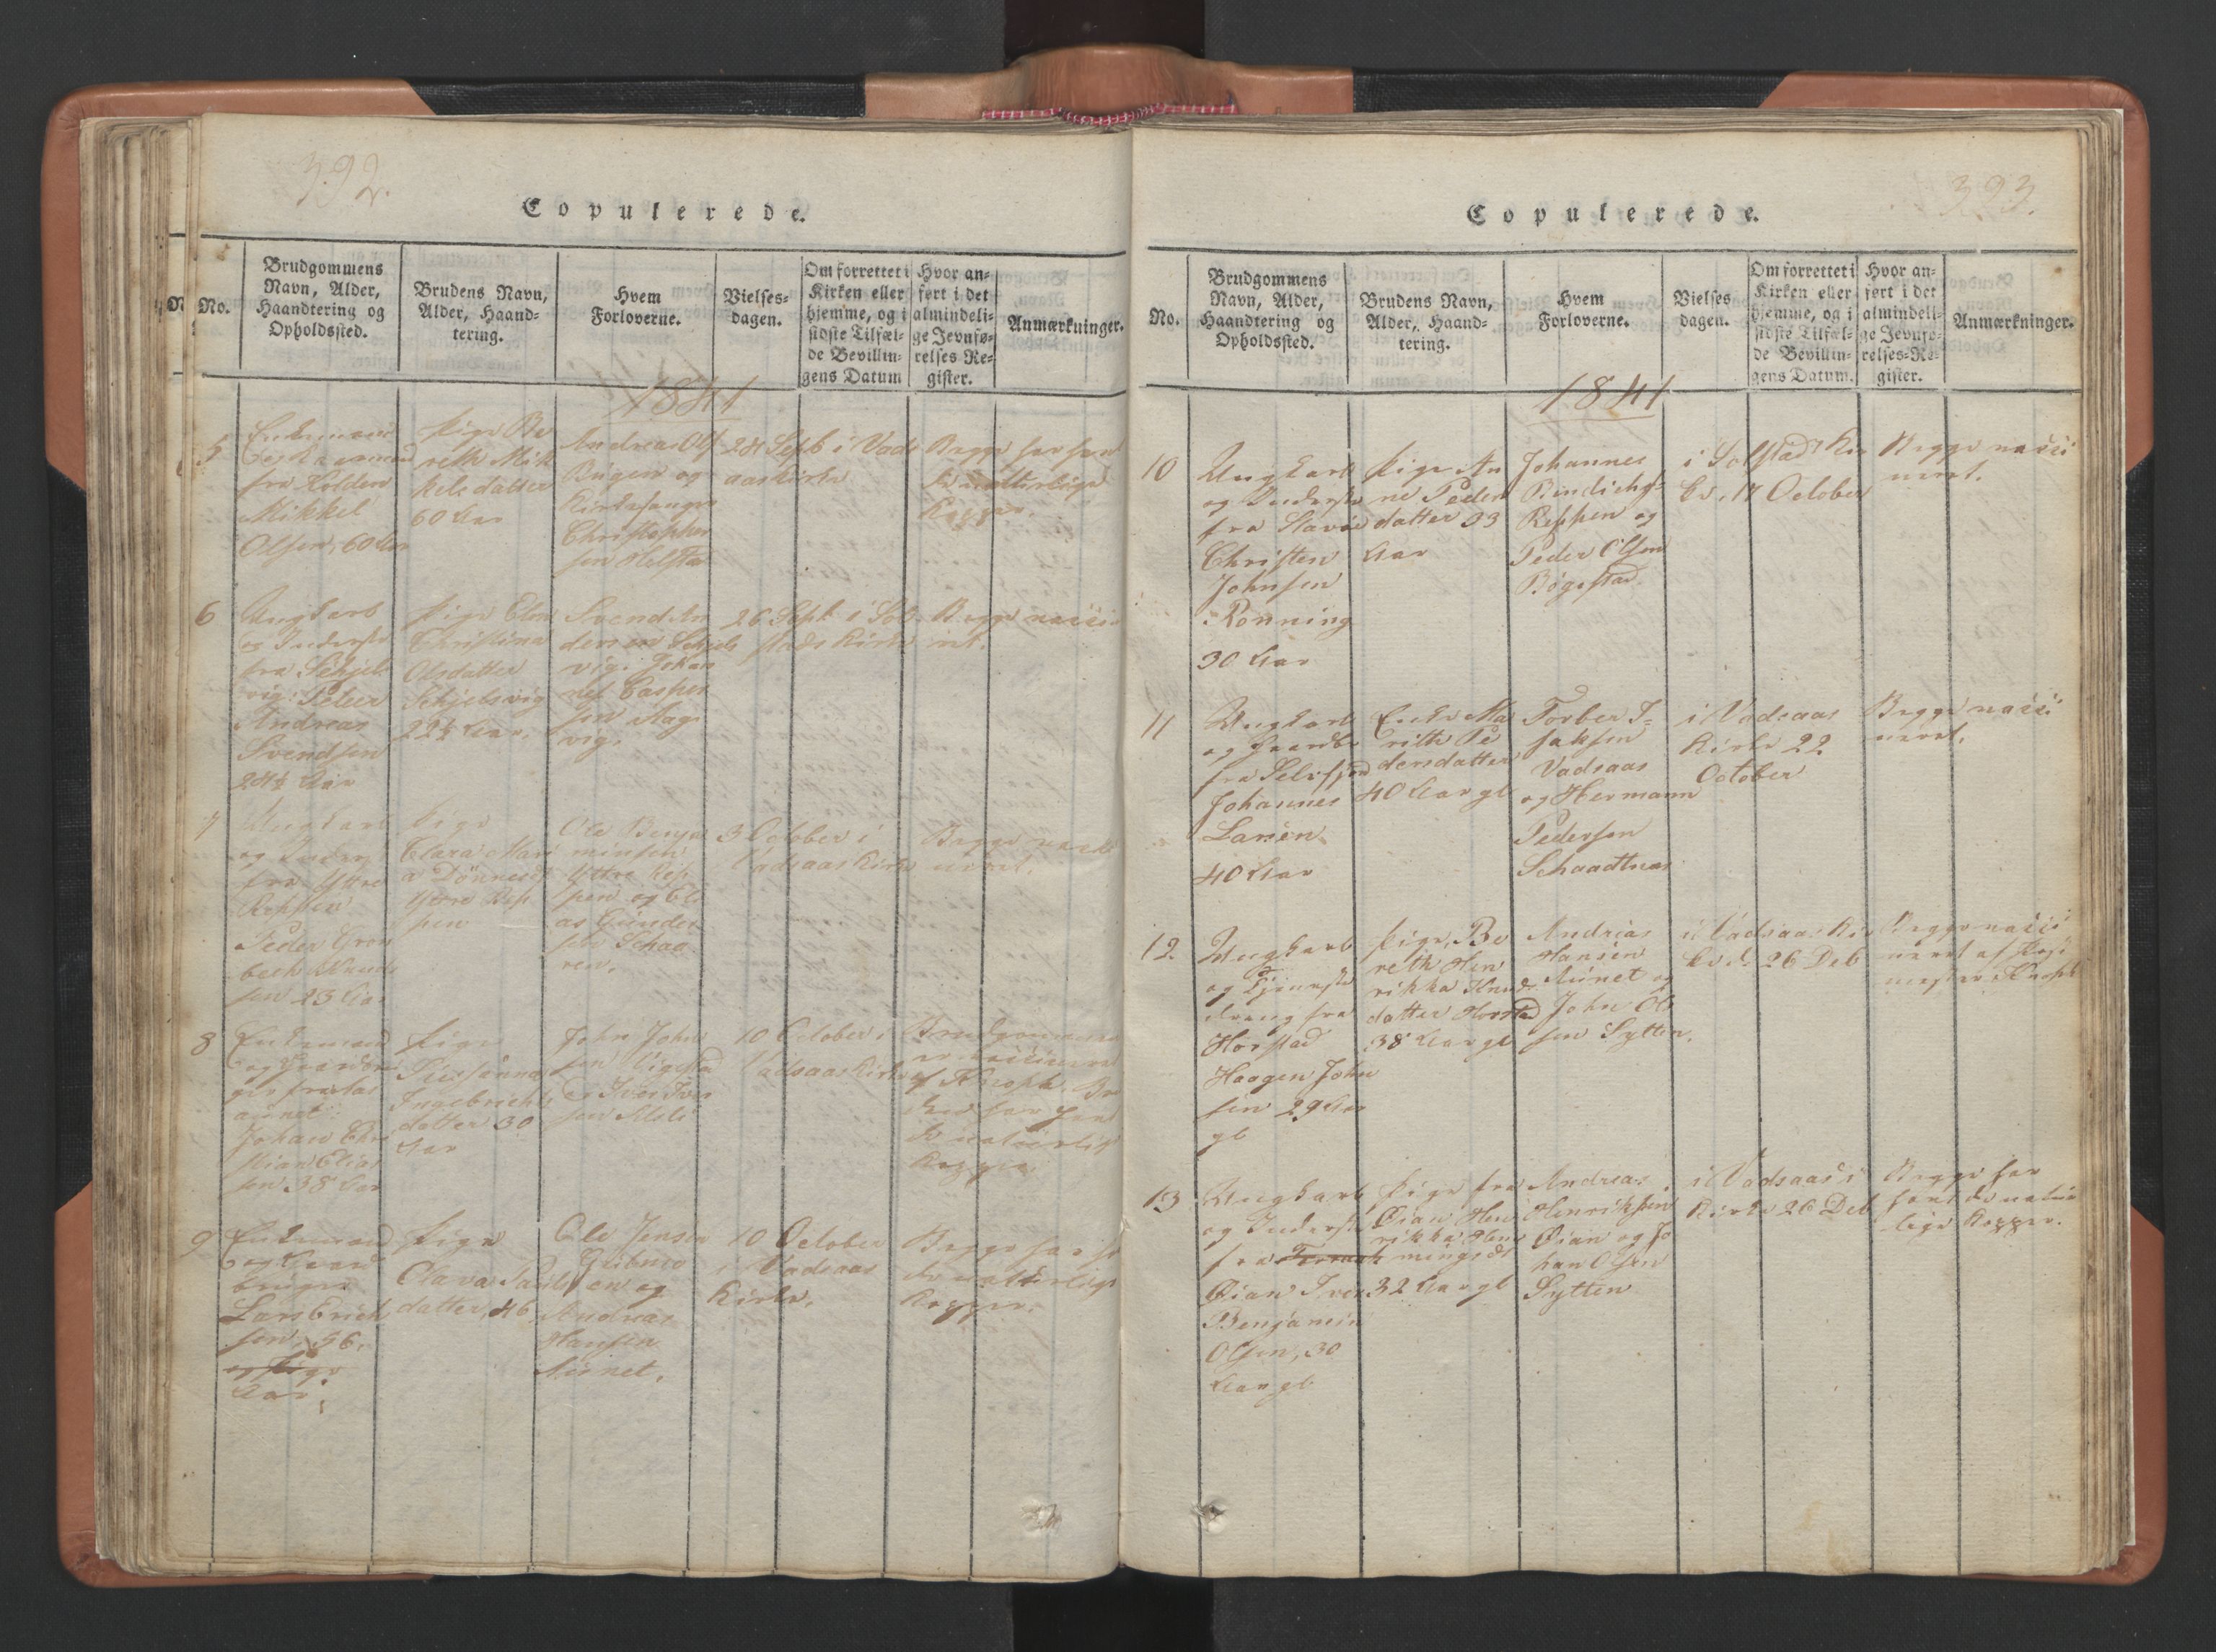 392.
Copulerede.
No.
Brudgommens
Navn, Alder,
Haandtering og
Opholdssted.
Brudens Navn,
Alder, Haand-
tering.
Hvem
Forloverne.
Vielses-
dagen.
Om forrettet i
Kirken eller
hjemme, og i
sidste Tilfæl-
de Bevillin-
gens Datum
Hvor an-
ført i det
almindeli-
ge Jevnfø-
relses-Re-
gister.
Anmærkninger.
1841
5
Enkemand
fra Holden
Mikkel
Olsen, 60 Aar
Pige Be
reth Mik
kels datter
60 Aar
Andreas Ols
Bügen og
Kirkesanger
Christopher
sen Helstad
28 Sept i Vads
aas kirke
Begge har havt
de naturlige
Kopper.
6
Ungkarl
og Inderste
fra Schjels
vig: Peter
Andreas
Svendsen
24½ Aar
Pige Elen
Christina
Olsdatter
Schjelsvig
22½ Aar.
Svend An
dersen Schjels
vig. Johan
nes Casper
sen Aag
vig.
26 Sept i Sol
stads Kirke
Begge vacci
nt.
7
Ungkarl
og Inder
fra Yttre
Reppen
Peder Gron
bech Knud
sen 23 Aar
Pige
Clara Mari
a Dönnes
Yttre Rep
pen
Ole Benja
minsen
Yttre Rep
pen og Eli
as Günder
sen Schaa
ren.
3 October i
Vadsaas Kirke
Begge vacci
neret.
8
Enkemand
og Gaardbru
ger fra
aunet:
Johan Chri
stian Elias
sen 38 Aar
Pige
Susanna
Ingebrichts
datter 30
Aar
John John
sen Vigestad
& Iver Iver
sen
10 October i
Vadsaas Kirke
Brudgommen
er vaccineret
af Knoph. Bru
den har havt
de naturlige
Kopper.
9
Enkemand
og Gaard
bruger
Lars Erich
sen, 56.
og Pige
Aar;
Pige
Clara Pauls
datter, 46
Ole Jensen
Gribnes
en og
Andreas
Hansen
Aünet.
10 October
i Vadsaas
Kirke.
Begge har havt
de naturlige
Kopper.
393.
Copulerede.
No.
Brudgommens
Navn, Alder,
Haandtering og
Opholdssted.
Brudens Navn,
Alder, Haand-
tering.
Hvem
Forloverne.
Vielses
dagen.
Om forrettet i
Kirken eller
hjemme, og i
sidste Tilfæl-
de Bevillin-
gens Datum.
Hvor an-
ført i det
almindeli-
ge Jevnfø-
relses-Re-
gister.
Anmærkninger.
1841
10
Ungkarl
og Inderste
fra Havöe
Christen
Johnsen
Ronning
30 Aar
Pige An
ne Peder
datter 33
Aar
Johannes
Bendichs-
Reppen og
Peder Olsen
Bögestad.
i Solstad Kir
ke. 17 October
Begge vacci
neret.
11
Ungkarl
og Gaardbr
fra Selsfjord
Johannes
Larsen
40 Aar
Enke Ma
rith Pe
dersdatter
40 Aar gl
Torber I-
saksen
Vadsaas
og Hermann
Pedersen
Schaadtnæs
i Vadsaas
Kirke 22
October
Begge vacci
neret.
12.
Ungkarl
og Tjeneste
dreng fra
Horstad
Haagen John
sen 29 Aar
gl
Pige, Be
reth Hen
rikka Knuds
datter Horstad
38 Aar gl
Andreas
Hansen
Aünet og
John Ol
sen Sytten.
i Vadsaas Kir
ke d. 26 Deb
Begge vacci
neret af Skole
mester Knoph
13
Ungkarl
og Inderste
fra
Öian Iver
Benjamin
Olsen, 30
Aar gl
Pige fra
Öian Hen
rikka Hem
mingsdt
32 Aar gl
Andreas
Henriksen
Öian og Jo
han Olsen
Sytten
i Vadsaas
Kirke 26 Deb
Begge har
havt de natur
lige Kopper.